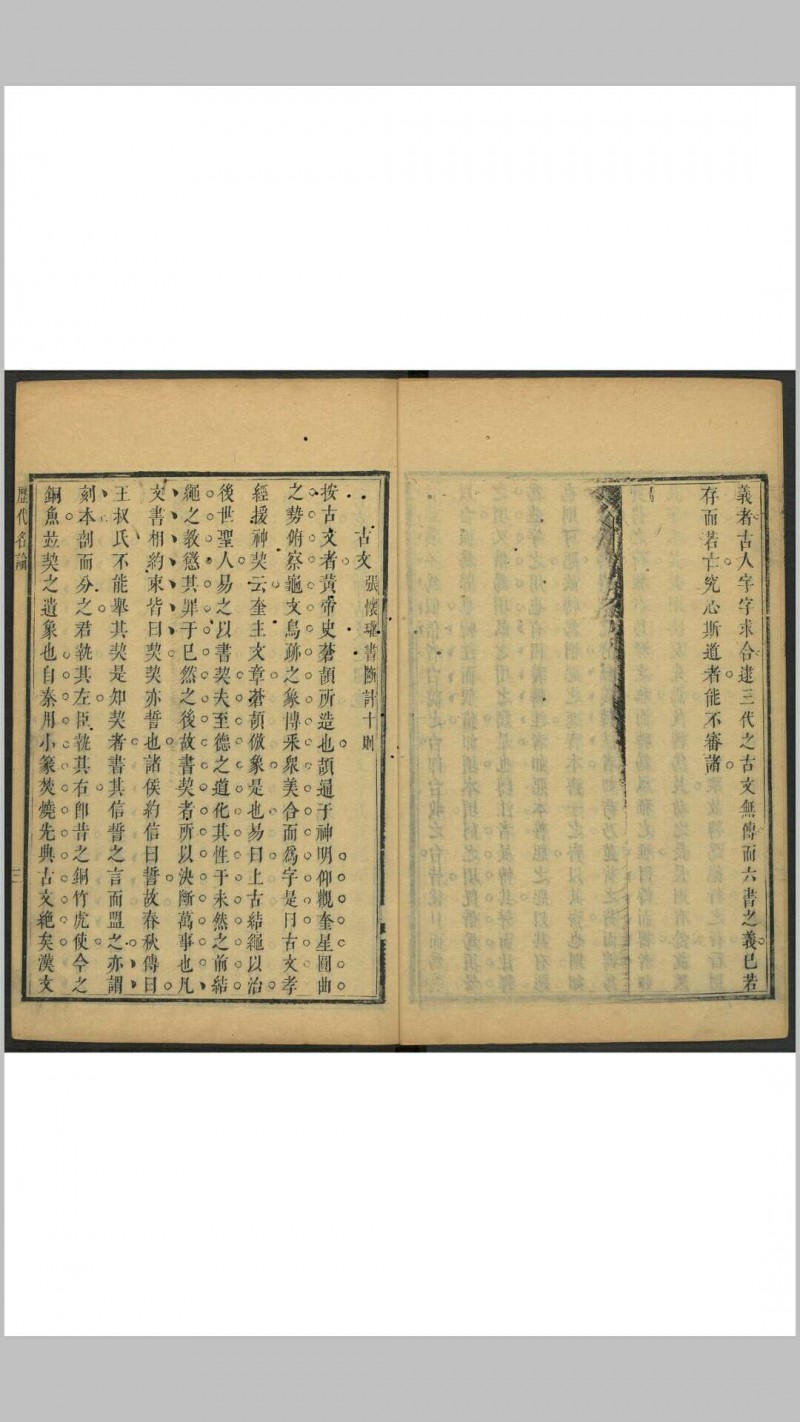 義者古人字字求合逮三代之古文無傳而六書之義已若
存而若亡究心斯道者能不審諸
古文 張懷瓘書斷計十則
按古文者黃帝史蒼頡所造也頡通于神明仰觀奎星圜曲
之勢俯察龜文鳥跡之象博采衆美合而爲字是曰古文孝
經援神契云奎主文章蒼頡倣象是也易曰上古結繩以治
後世聖人易之以書契夫至德之道化其性于未然之前結
繩之教懲其罪于已然之後故書契者所以決斷萬事也凡
文書相約束皆曰契契亦誓也諸侯約信曰誓故春秋傳曰
王叔氏不能舉其契是知契者書其信誓之言而盟之亦謂
刻木剖而分之君執其左臣執其右即昔之銅竹虎使今之
銅魚並契之遺象也自秦用小篆焚燒先典古文絶矣漢文
歷代名論
三